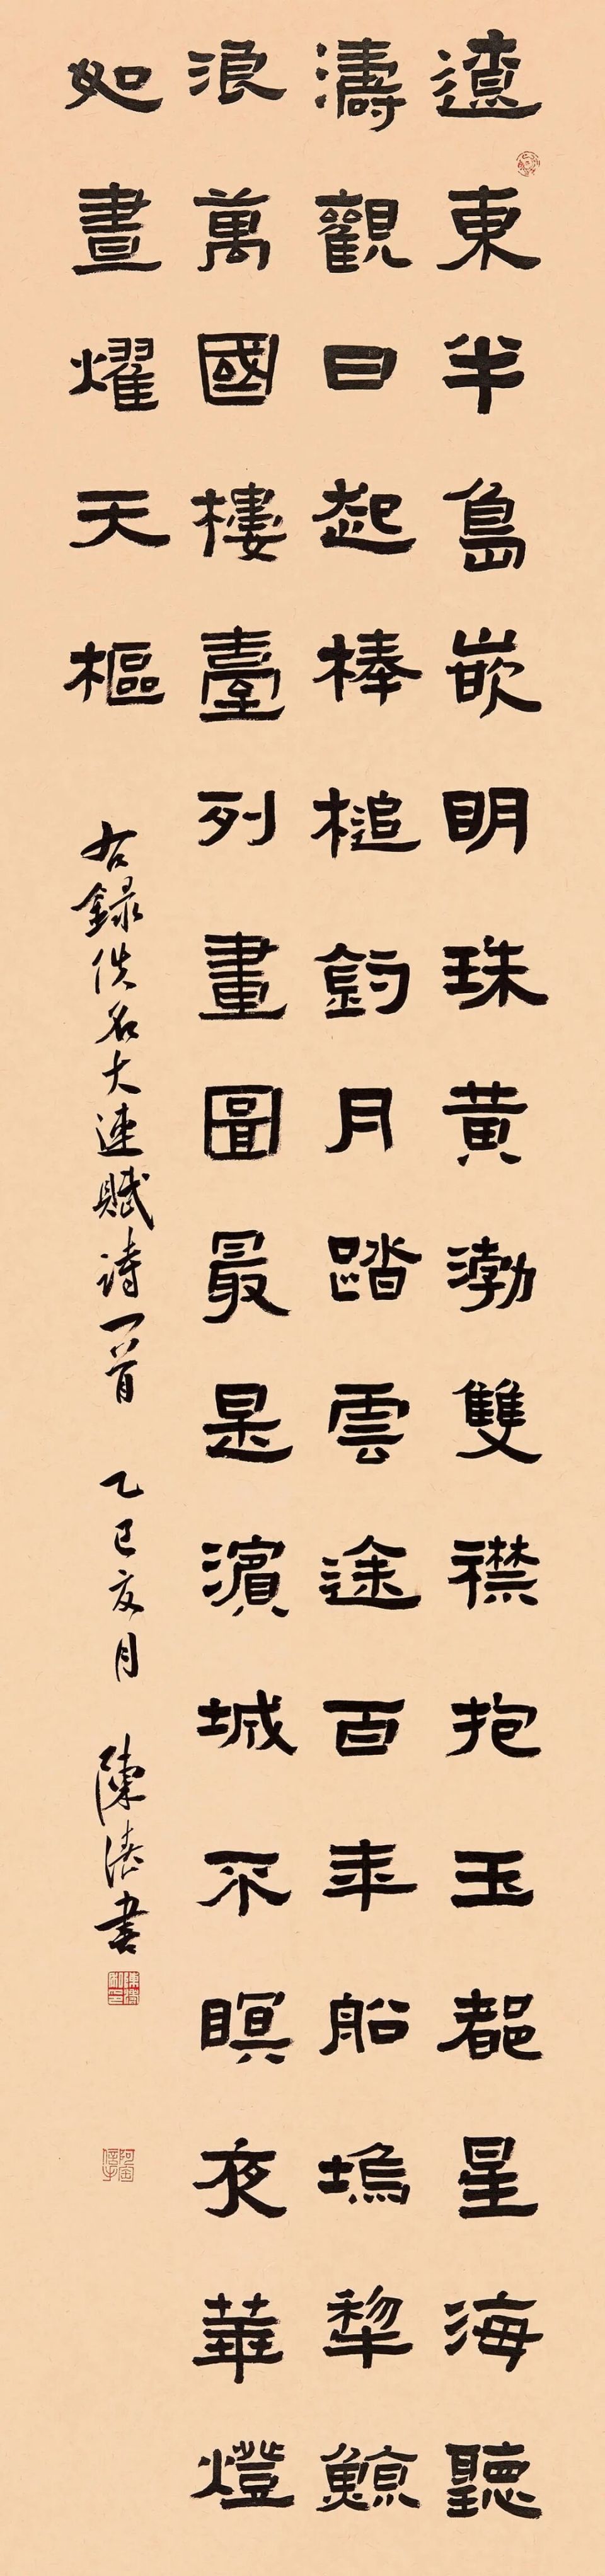 遼東半島嵌明珠黃渤雙襟抱玉都星海聽
濤觀日起棒槌釣月踏雲途百年船塢犂鯨
浪萬國樓臺列畫圖最是濱城不暝夜華燈
如晝燿天樞
右録佚名大連賦詩一首 乙巳亥月 陳濤書